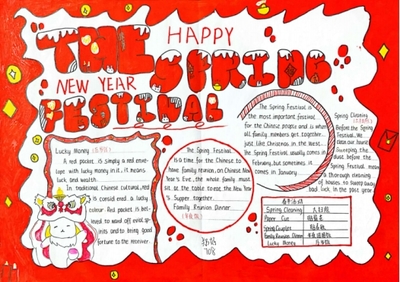 HAPPY
NEW YEAR
THE SPRING
FESTIVAL
Lucky Money
A red pocket is simply a red enve-
lope with lucky money in it, it means
luck and wealth.
In traditional Chinese cultural, red
is considered a lucky
colour. Red pocket is bel-
ieved to ward off evil spi-
rits and to bring good
fortune to the receiver.
The Spring Festival
is a time for the Chinese to
have family reunion, on Chinese New
Year's Eve, the whole family must
sit at the table to eat the New Year
's Supper, together.
Family Reunion Dinner
The Spring Festival is
the most important festival
for the Chinese people and is when
all family members get together,
just like Christmas in the West.
The Spring Festival usually comes in
February, but sometimes it
comes in January.
Spring Cleaning
Before the Spring
Festival, We
clean our house
sweeping the
dust before the
Spring Festival means
a thorough cleaning
of houses to sweep away
bad luck in the past year.
春节活动
Spring Cleaning 大扫除
Paper Cut 贴窗花
Spring Couplets 贴春联
Family Reunion Dinner 年夜团圆饭
Lucky Money 压岁钱
708